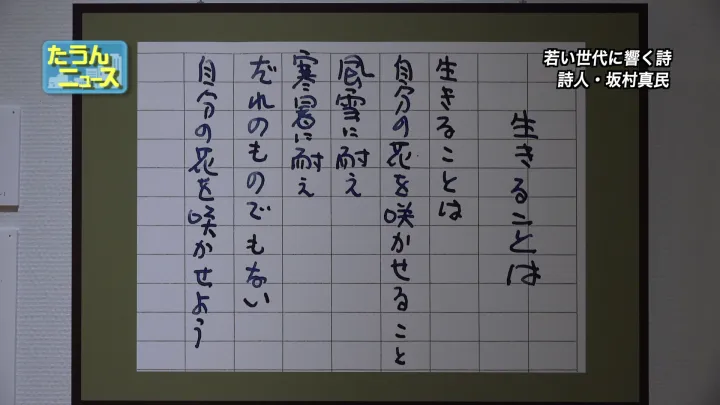 たうん
ニュース
若い世代に響く詩
詩人・坂村真民
生きることは
生きることは
自分の花を咲かせること
風雪に耐え
寒暑に耐え
だれのものでもない
自分の花を咲かせよう